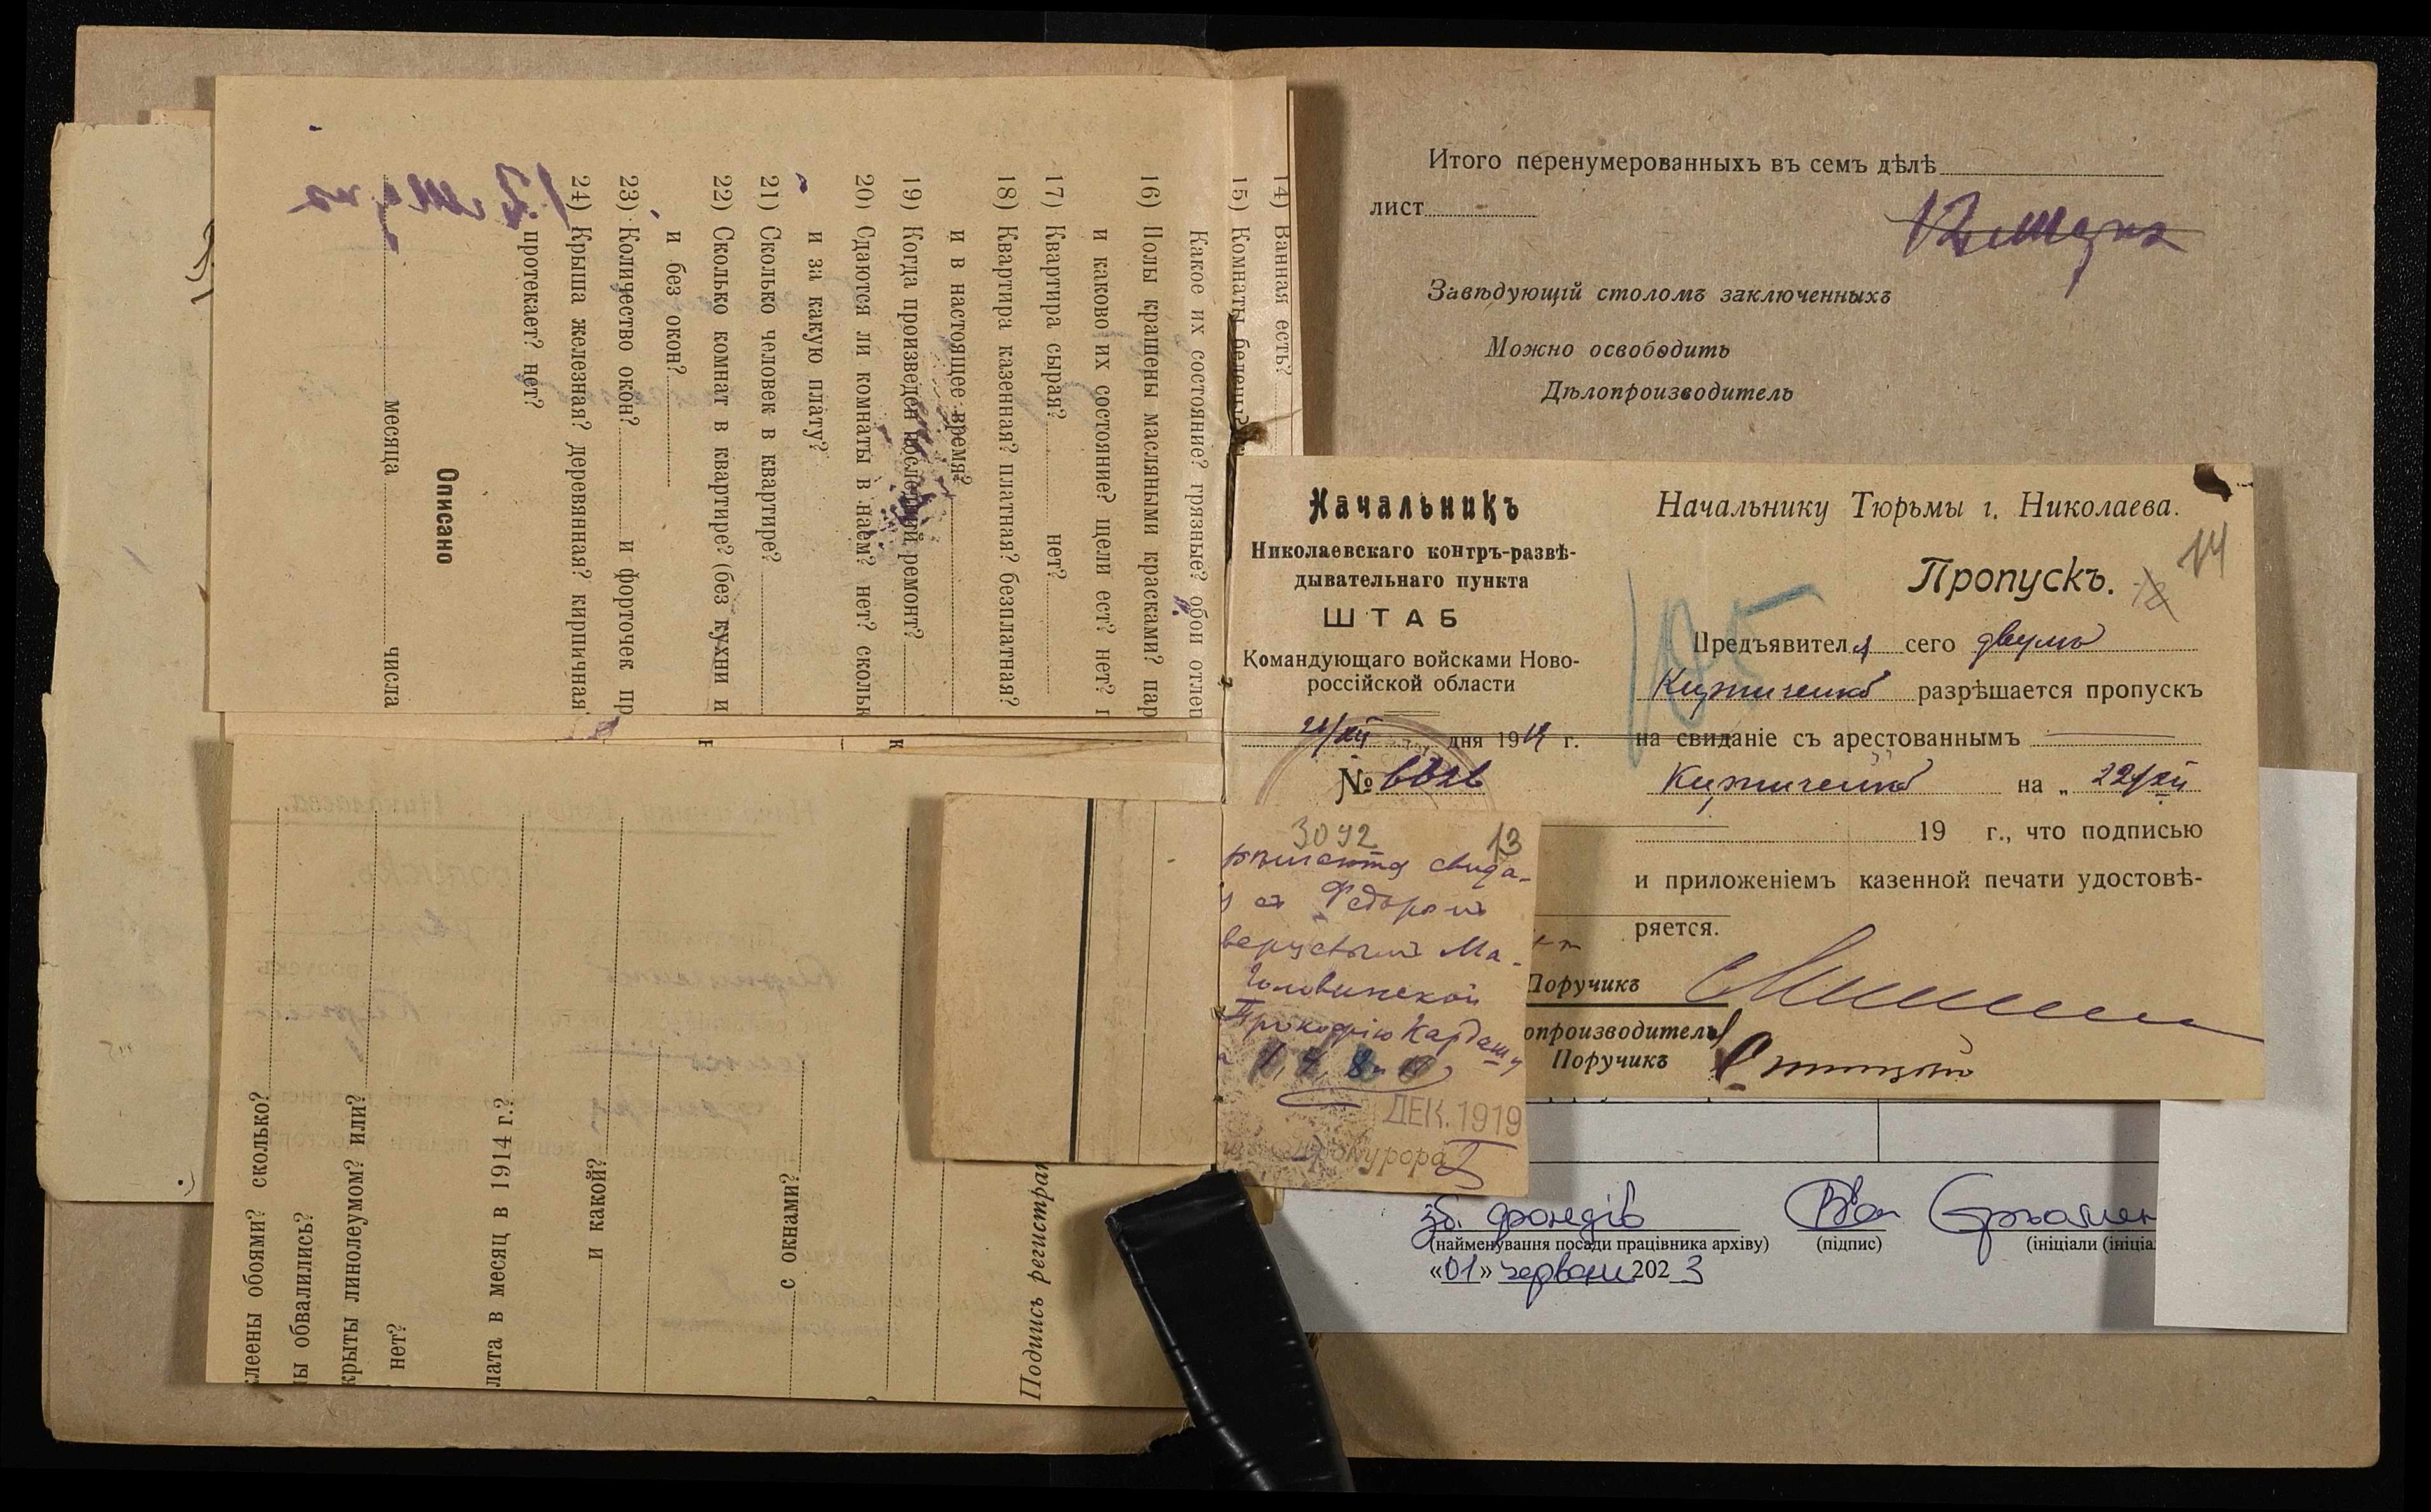 14) Ванная есть?
15) Комнаты белены?
Какое их состояние? грязные? обои отлеп
16) Полы крашены масляными красками? пар
и каково их состояние? щели ест? нет?
17) Квартира сырая? нет?
18) Квартира казенная? платная? безплатная?
и в настоящее время?
19) Когда произведен последний ремонт?
20) Сдаются ли комнаты в наем? нет? скольк
и за какую плату?
21) Сколько человек в квартире?
22) Сколько комнат в квартире? (без кухни и
и без окон?
23) Количество окон? и форточек пр
24) Крыша железная? деревянная? кирпичная
протекает? нет?
Описано
месяца числа
клеены обоями? сколько?
ны обвалились?
крыты линолеумом? или?
нет?
лата в месяц в 1914 г.?
и какой?
с окнами?
Подпись регистран
Итого перенумерованныхъ въ семъ дѣлѣ
лист
Завѣдующій столомъ заключенныхъ
Можно освободить
Дѣлопроизводитель
Начальникъ
Николаевскаго контръ-развѣ-
дывательнаго пункта
ШТАБ
Командующаго войсками Ново-
россійской области
21/XII дня 1919 г.
№
Начальнику Тюрьмы г. Николаева.
14
Пропускъ.
12
105
Предъявителя сего двумъ
разрѣшается пропускъ
на свиданіе съ арестованнымъ
на „ 22/XII
19 г., что подписью
и приложеніемъ казенной печати удостовѣ-
ряется.
Поручикъ
опроизводитель
Поручикъ
3092 13
свида-
съ Федоромъ
Ма-
Головинской
Прокофію Кардашу
ДЕК. 1919
Прокурора
зб. фондів
(найменування посади працівника архіву) (підпис) (ініціали (ініціа
«01» червня 2023